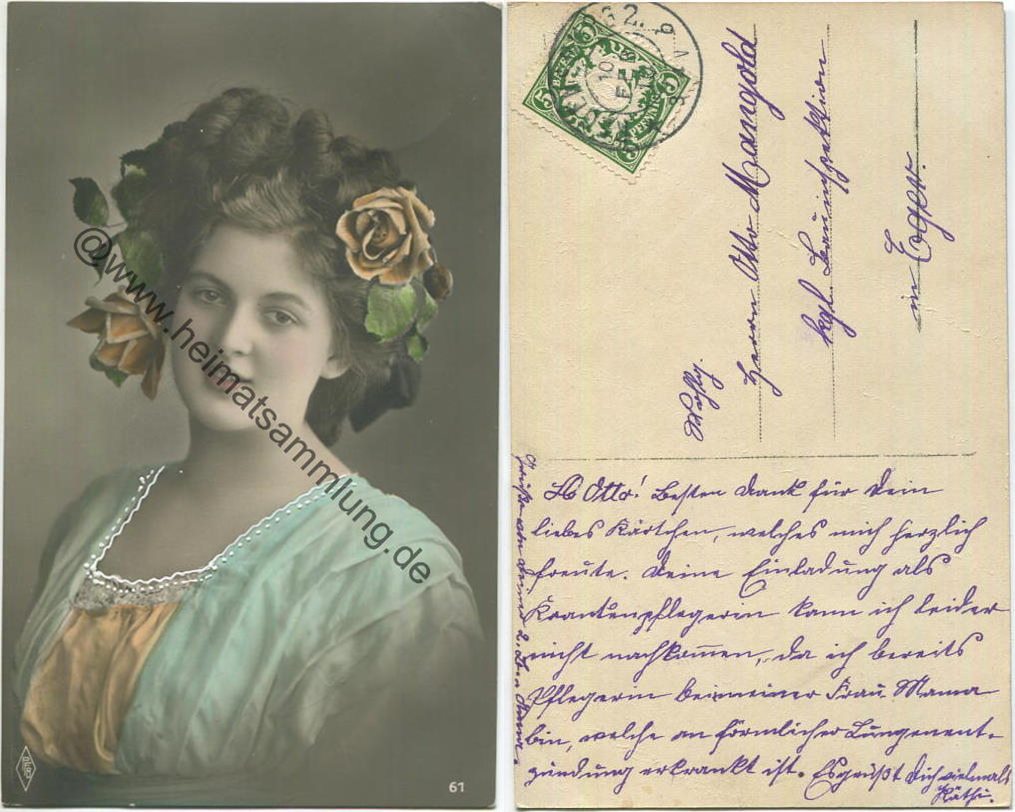 @www.heimatsammlung.de
61
5 PFENNIG 5
BAYERN
Herrn Otto Mangold
kgl. Bauinspektion
in Eger.
Wohlg.
Lb Otto! Besten Dank für Dein
liebes Kärtchen, welches mich herzlich
freute. Deine Einladung als
Krankenpflegerin kann ich leider
nicht nachkom̅en, da ich bereits
Pflegerin bei meiner Frau Mama
bin, welche an förmlicher Lungenent-
zündung erkrankt ist. Es grüßt Dich vielmals
Käthi.
Grüße an Deine